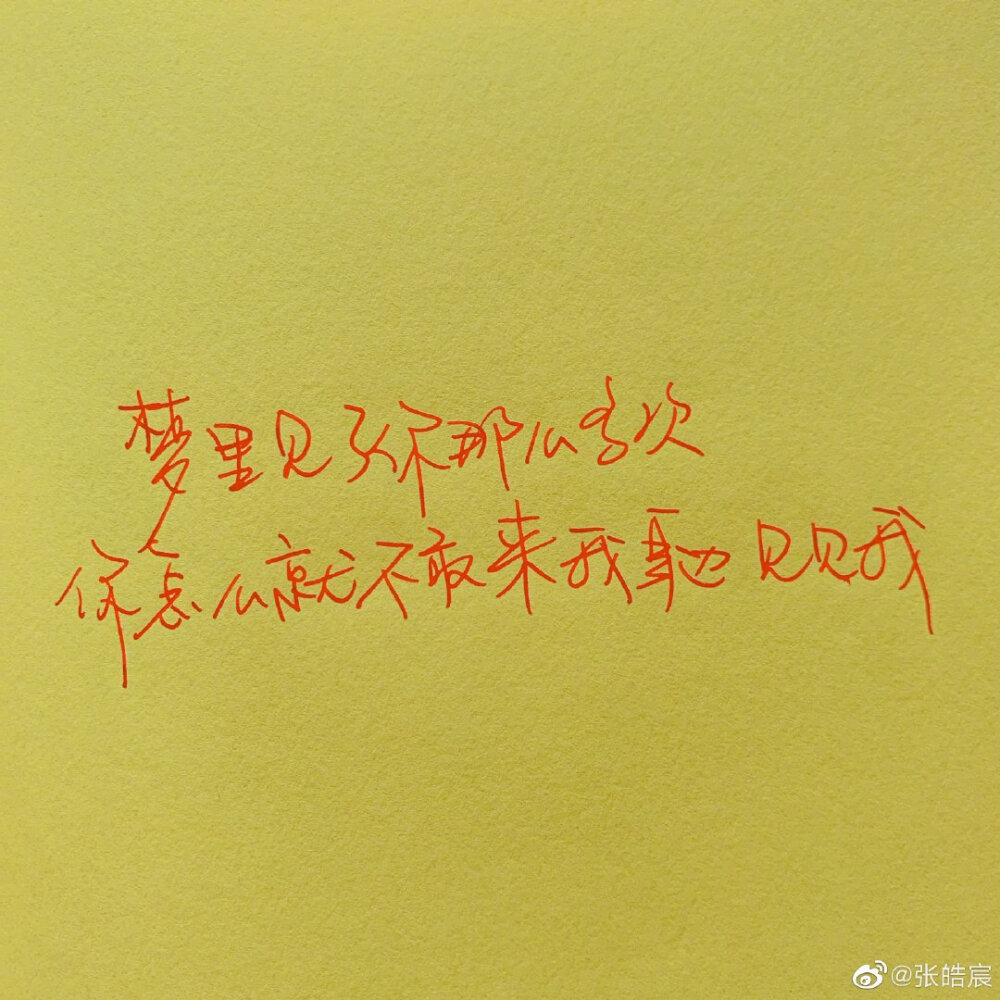 梦里见了你那么多次
你怎么就不敢来我身边见见我
@张皓宸